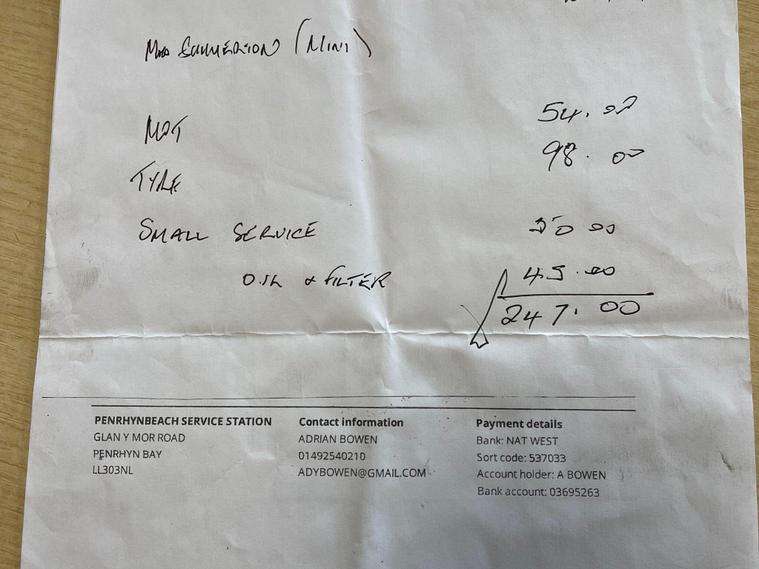 (MINI)
MOT 54.00
TYRE 98.00
SMALL SERVICE 50 00
OIL & FILTER 45.00
247.00
PENRHYNBEACH SERVICE STATION
GLAN Y MOR ROAD
PENRHYN BAY
LL303NL
Contact information
ADRIAN BOWEN
01492540210
ADYBOWEN@GMAIL.COM
Payment details
Bank: NAT WEST
Sort code: 537033
Account holder: A BOWEN
Bank account: 03695263